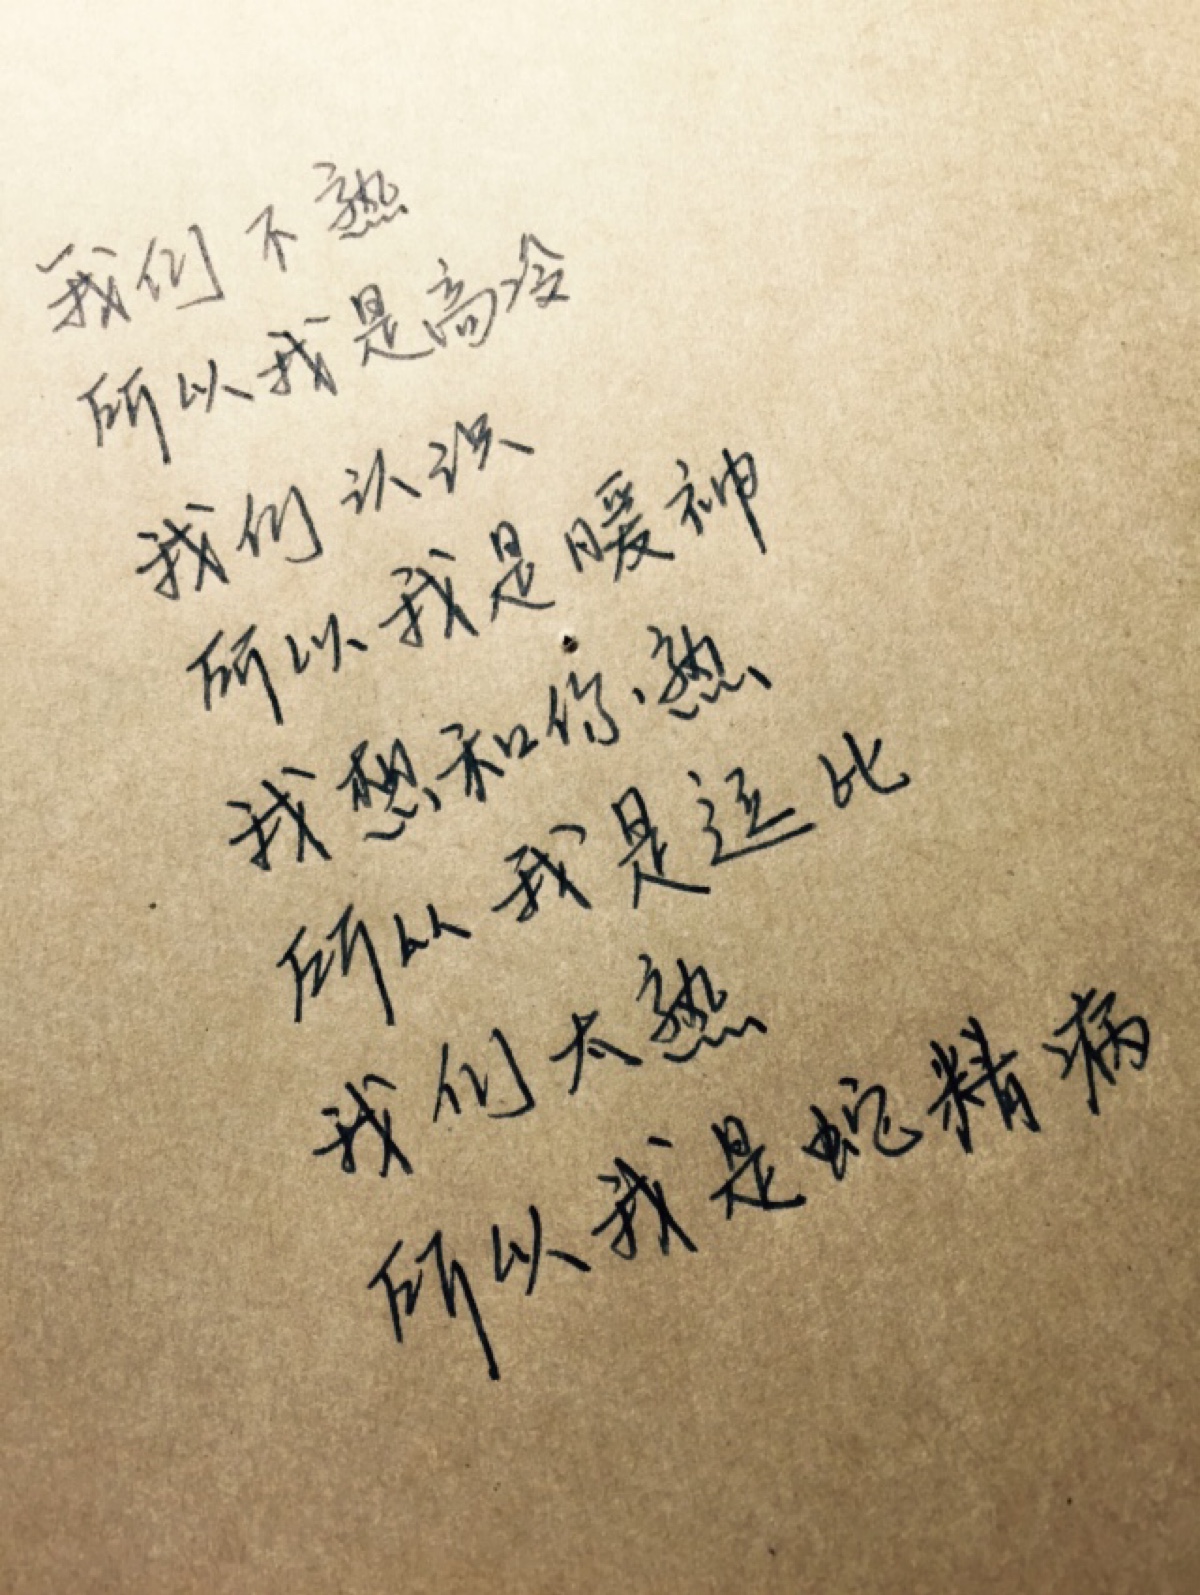 我们不熟
所以我是高冷
我们认识
所以我是暖神
我想和你熟
所以我是逗比
我们太熟
所以我是蛇精病